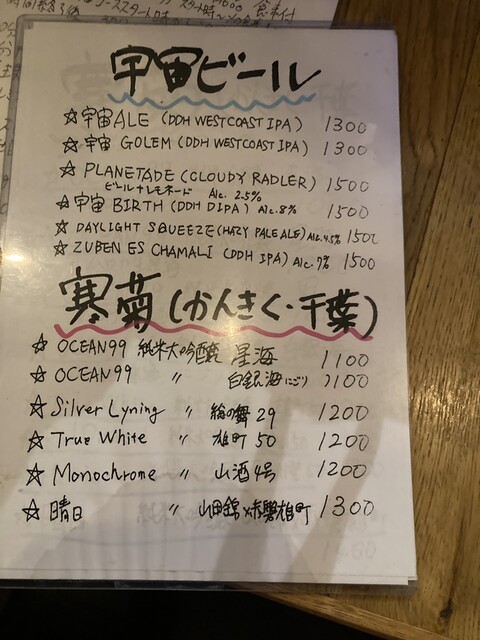 宇宙ビール
☆宇宙ALE (DDH WESTCOAST IPA) 1300
☆宇宙 GOLEM (DDH WESTCOAST IPA) 1300
☆ PLANETADE (CLOUDY RADLER) 1500
ビール+レモネード Alc. 2.5%
☆宇宙 BIRTH (DDH DIPA) Alc. 8% 1500
☆ DAYLIGHT SQUEEZE (HAZY PALE ALE) Alc. 4.5% 1500
☆ ZUBEN ES CHAMALI (DDH IPA) Alc. 7% 1500
寒菊(かんきく・千葉)
☆ OCEAN99 純米大吟醸 星海 1100
☆ OCEAN99 〃 白銀海にごり 1100
☆ Silver Lyning 〃 総の舞 29 1200
☆ True White 〃 雄町 50 1200
☆ Monochrome 〃 山酒4号 1200
☆ 晴日 〃 山田錦×赤磐雄町 1300